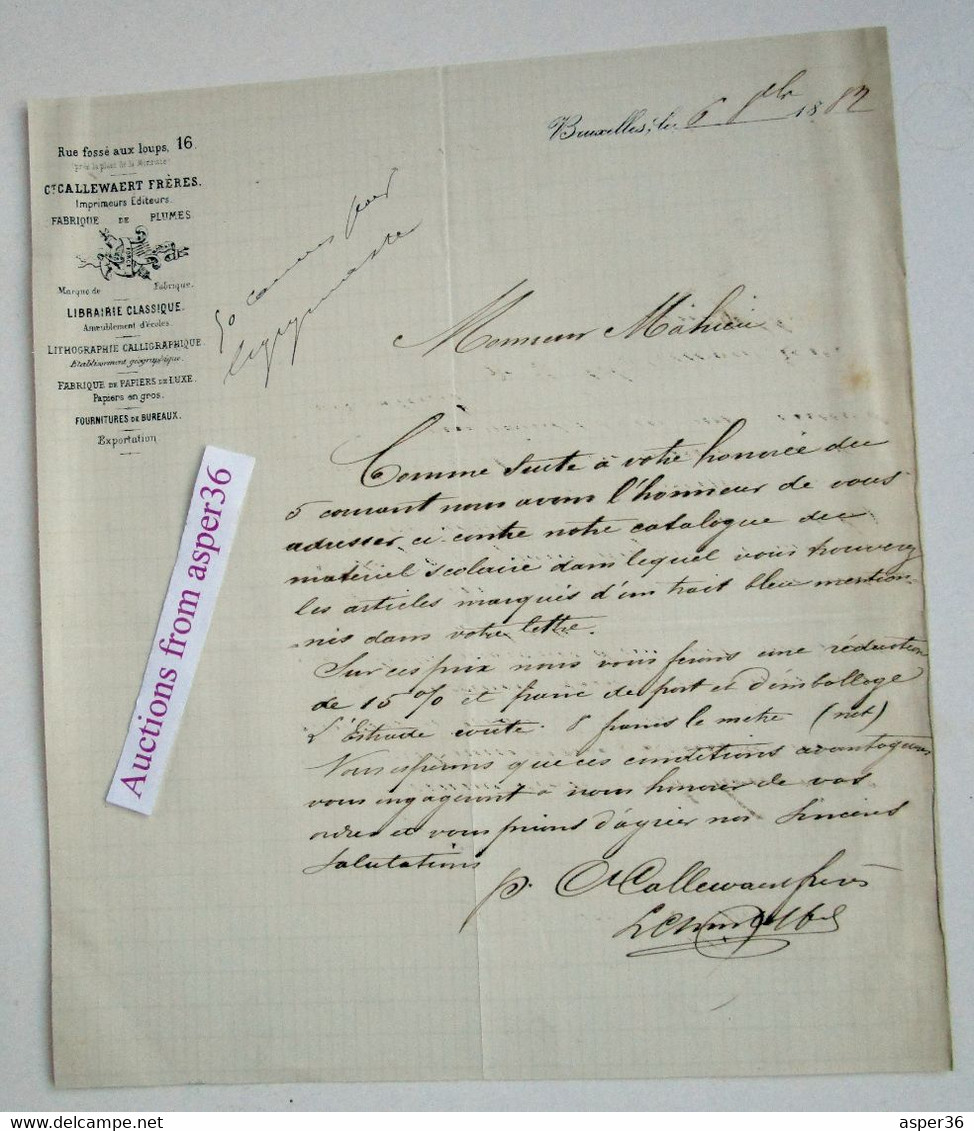 Rue fossé aux loups, 16.
près la place de la Monnaie
CT CALLEWAERT FRÈRES.
Imprimeurs Éditeurs.
FABRIQUE DE PLUMES
Marque de Fabrique.
LIBRAIRIE CLASSIQUE.
Ameublement d'écoles
LITHOGRAPHIE CALLIGRAPHIQUE
Etablissement géographique.
FABRIQUE DE PAPIERS DE LUXE.
Papiers en gros.
FOURNITURES DE BUREAUX.
Exportation
Bruxelles, le 6 1882
50
Monsieur Mahieu
Comme suite à votre honorée du
5 courant nous avons l'honneur de vous
adresser ci contre notre catalogue du
matériel scolaire dans lequel vous trouverez
les articles marqués d'un trait bleu mention-
nés dans votre lettre.
Sur ces prix nous vous ferons une réduction
de 15 % et franc de port et d'emballage
L'Estrade coûte 8 francs le metre (net)
Nous espérons que ces conditions avantageuses
vous engageront à nous honorer de vos
ordres et vous prions d'agréer nos sincères
salutations
p. Ct Callewaert frères
Auctions from asper36
asper36